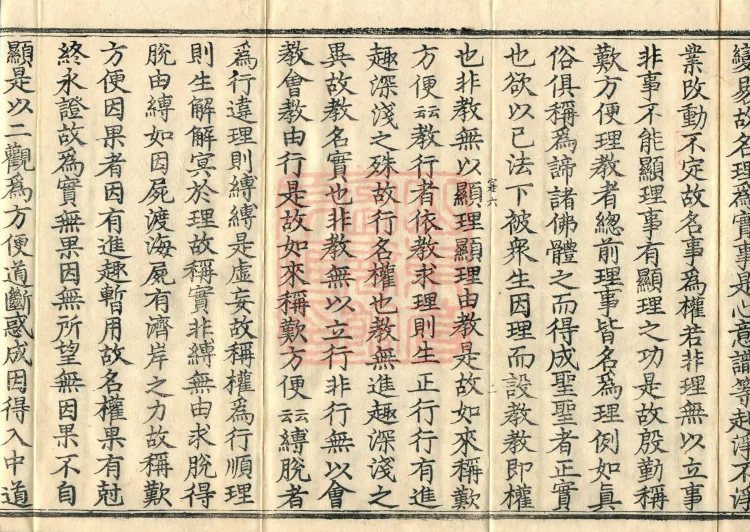 變易故名理爲實事是心意識等起淨不淨
業改動不定故名事爲權若非理無以立事
非事不能顯理事有顯理之功是故殷勤稱
歎方便理教者總前理事皆名爲理例如眞
俗俱稱爲諦諸佛體之而得成聖聖者正實
也欲以己法下被衆生因理而設教教即權
也非教無以顯理顯理由教是故如來稱歎
方便云云教行者依教求理則生正行行有進
趣深淺之殊故行名權也教無進趣深淺之
異故教名實也非教無以立行非行無以會
教會教由行是故如來稱歎方便云云縛脫者
爲行違理則縛縛是虛妄故稱權爲行順理
則生解解冥於理故稱實非縛無由求脫得
脫由縛如因屍渡海屍有濟岸之力故稱歎
方便因果者因有進趣暫用故名權果有尅
終永證故爲實無果因無所望無因果不自
顯是以二觀爲方便道斷惑成因得入中道